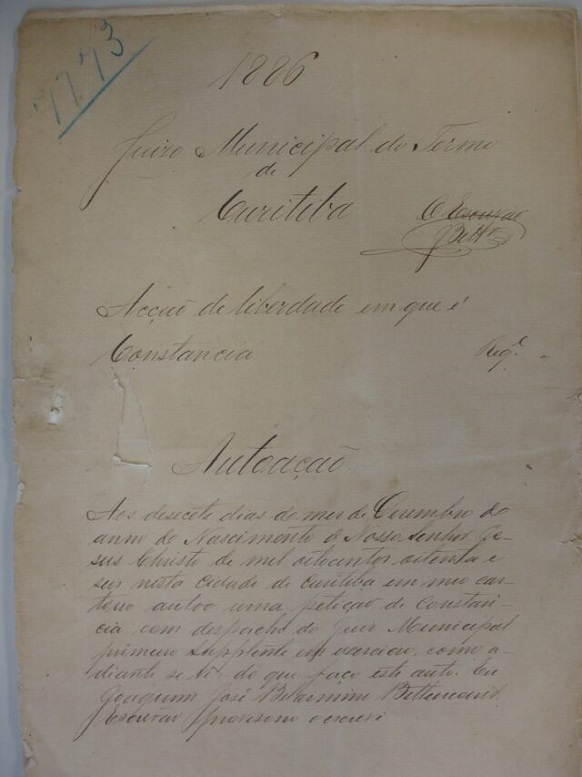 1886
Juizo Municipal do Termo
de
Curitiba
O Escrivão
Bettt
Acção de liberdade em que é
Constancia Reqe.
Autoação
Aos desecete dias do mez de Dezembro do
anno do Nascimento de Nosso Senhor Je-
sus Christo de mil oitocentos oitenta e
seis nesta cidade de Curitiba em meu car-
torio autoo uma petição de Constan-
cia com despacho do Juiz Municipal
primeiro supplente em exercicio, como a-
diante se vê do que faço este auto. Eu
Joaquim José Bettencourt
Escrivão o escrevi